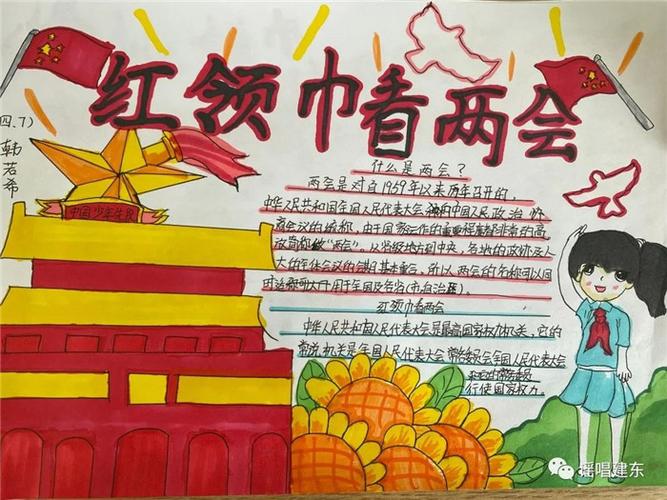 红领巾看两会
四、7)
韩若希
中国少年先锋队
什么是两会?
两会是对自1959年以来历年召开的,
中华人民共和国全国人民代表大会和中国人民政治协
商会议的统称,由于国家运作的重要程度都非常的高
故简称做“两会”。从省级地方到中央,各地的政协及人
大的全体会议的会期基本重合,所以两会的名称可以同
时适用于全国及各省(市,自治区)。
红领巾看两会
中华人民共和国人民代表大会是最高国家权力机关,它的
常设机关是全国人民代表大会常务委员会全国人民代表大会
行使国家权力。
摇唱建东